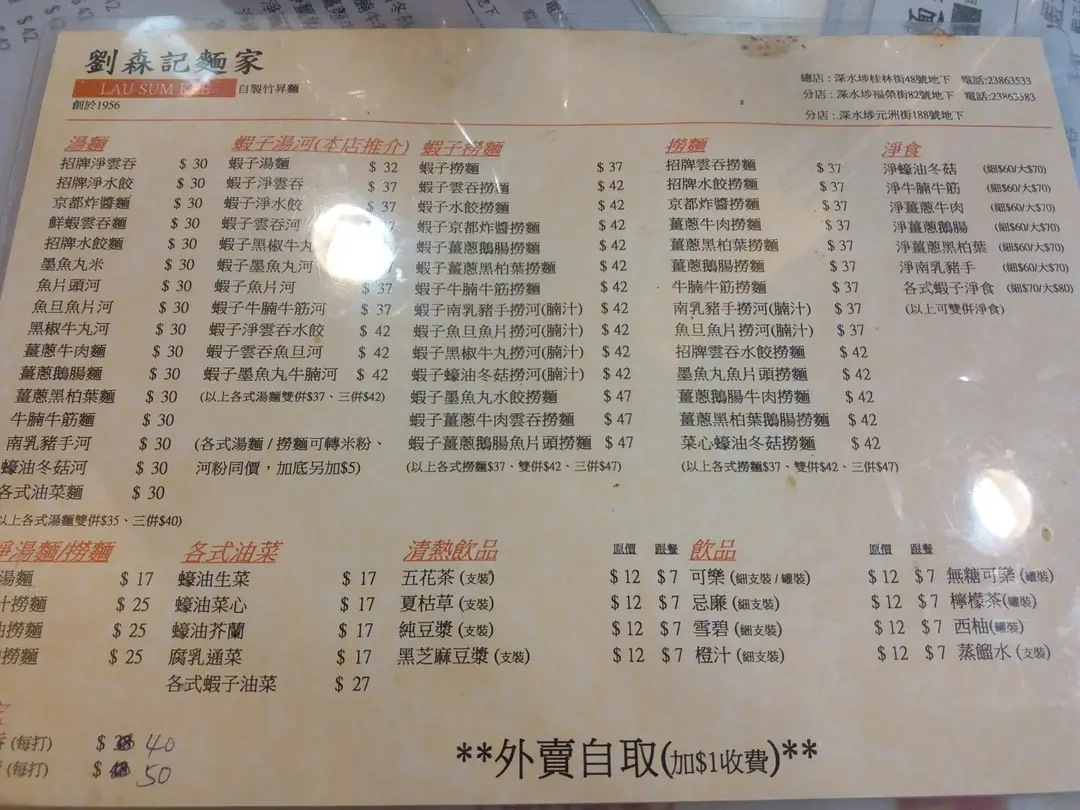 劉森記麵家
LAU SUM KEE 自製竹昇麵
創於1956
總店：深水埗桂林街48號地下 電話:23863533
分店：深水埗福榮街82號地下 電話:23863583
分店：深水埗元洲街188號地下
湯麵
招牌淨雲吞 $ 30
招牌淨水餃 $ 30
京都炸醬麵 $ 30
鮮蝦雲吞麵 $ 30
招牌水餃麵 $ 30
墨魚丸米 $ 30
魚片頭河 $ 30
魚旦魚片河 $ 30
黑椒牛丸河 $ 30
薑蔥牛肉麵 $ 30
薑蔥鵝腸麵 $ 30
薑蔥黑柏葉麵 $ 30
牛腩牛筋麵 $ 30
南乳豬手河 $ 30
蠔油冬菇河 $ 30
各式油菜麵 $ 30
以上各式湯麵雙併$35、三併$40)
蝦子湯河(本店推介)
蝦子湯麵 $ 32
蝦子淨雲吞 $ 37
蝦子淨水餃 37
蝦子雲吞河
蝦子黑椒牛丸
蝦子墨魚丸河
蝦子魚片河 $ 37
蝦子牛腩牛筋河 $ 37
蝦子淨雲吞水餃 $ 42
蝦子雲吞魚旦河 $ 42
蝦子墨魚丸牛腩河 $ 42
(以上各式湯麵雙併$37、三併$42)
(各式湯麵 / 撈麵可轉米粉、
河粉同價，加底另加$5)
蝦子撈麵
蝦子撈麵 $ 37
蝦子雲吞撈麵 $ 42
蝦子水餃撈麵 $ 42
蝦子京都炸醬撈麵 $ 42
蝦子薑蔥鵝腸撈麵 $ 42
蝦子薑蔥黑柏葉撈麵 $ 42
蝦子牛腩牛筋撈麵 $ 42
蝦子南乳豬手撈河(腩汁) $ 42
蝦子魚旦魚片撈河(腩汁) $ 42
蝦子黑椒牛丸撈河(腩汁) $ 42
蝦子蠔油冬菇撈河(腩汁) $ 42
蝦子墨魚丸水餃撈麵 $ 47
蝦子薑蔥牛肉雲吞撈麵 $ 47
蝦子薑蔥鵝腸魚片頭撈麵 $ 47
(以上各式撈麵$37、雙併$42、三併$47)
撈麵
招牌雲吞撈麵 $ 37
招牌水餃撈麵 $ 37
京都炸醬撈麵 $ 37
薑蔥牛肉撈麵 $ 37
薑蔥黑柏葉撈麵 $ 37
薑蔥鵝腸撈麵 $ 37
牛腩牛筋撈麵 $ 37
南乳豬手撈河(腩汁) $ 37
魚旦魚片撈河(腩汁) $ 37
招牌雲吞水餃撈麵 $ 42
墨魚丸魚片頭撈麵 $ 42
薑蔥鵝腸牛肉撈麵 $ 42
薑蔥黑柏葉鵝腸撈麵 $ 42
菜心蠔油冬菇撈麵 $ 42
(以上各式撈麵$37、雙併$42、三併$47)
淨食
淨蠔油冬菇 (細$60/大$70)
淨牛腩牛筋 (細$60/大$70)
淨薑蔥牛肉 (細$60/大$70)
淨薑蔥鵝腸 (細$60/大$70)
淨薑蔥黑柏葉 (細$60/大$70)
淨南乳豬手 (細$60/大$70)
各式蝦子淨食 (細$70/大$80)
(以上可雙併淨食)
淨湯麵/撈麵
湯麵 $ 17
汁撈麵 $ 25
油撈麵 $ 25
撈麵 $ 25
各式油菜
蠔油生菜 $ 17
蠔油菜心 $ 17
蠔油芥蘭 $ 17
腐乳通菜 $ 17
各式蝦子油菜 $ 27
清熱飲品 原價 跟餐
五花茶 (支裝) $ 12 $ 7
夏枯草 (支裝) $ 12 $ 7
純豆漿 (支裝) $ 12 $ 7
黑芝麻豆漿 (支裝) $ 12 $ 7
飲品 原價 跟餐
可樂 (細支裝 / 罐裝) $ 12 $ 7 無糖可樂 (罐裝)
忌廉 (細支裝) $ 12 $ 7 檸檬茶(罐裝)
雪碧 (細支裝) $ 12 $ 7 西柚(罐裝)
橙汁 (細支裝) $ 12 $ 7 蒸餾水 (支裝)
(每打) $ 40
(每打) $ 50
**外賣自取(加$1收費)**